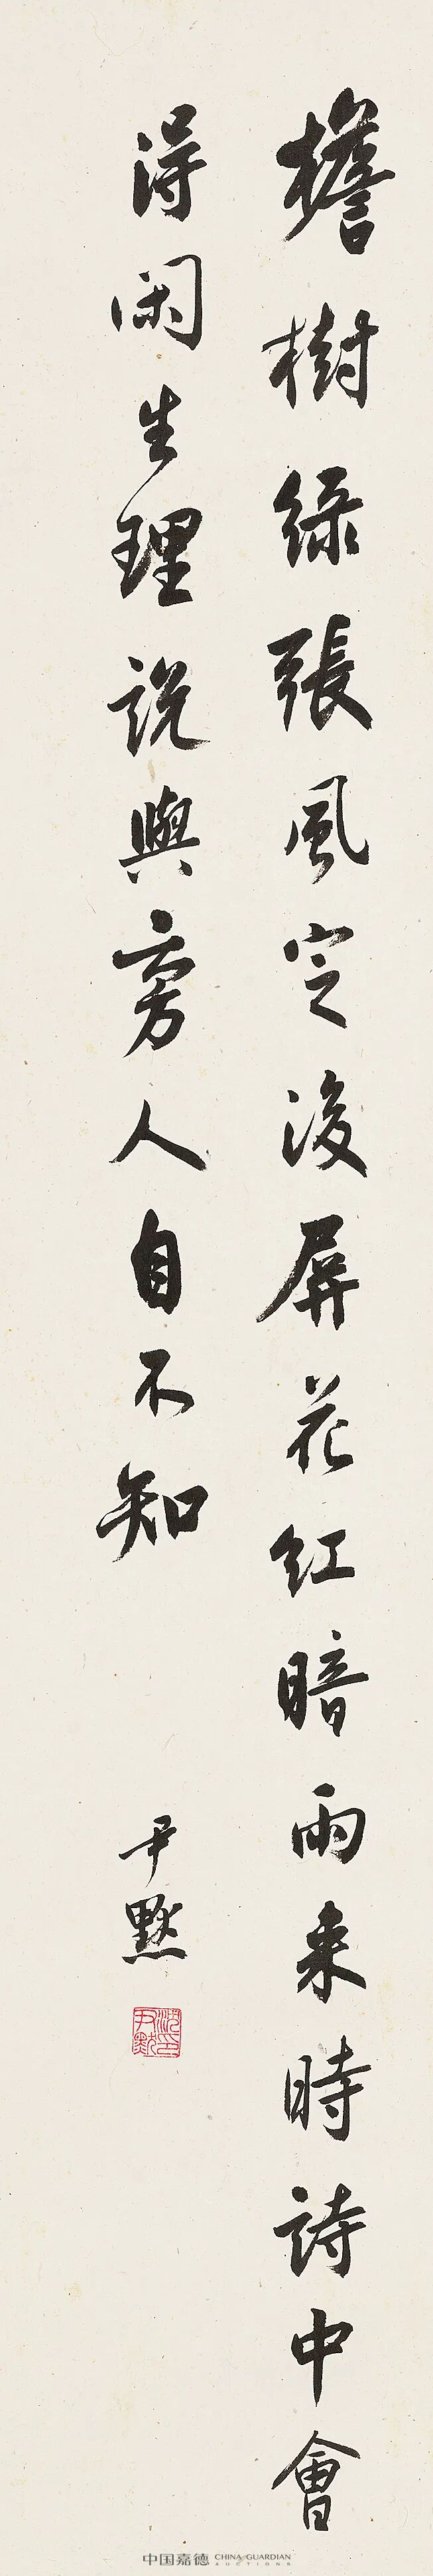 檐樹綠張風定後屏花紅暗雨来時詩中會
得閑生理說與旁人自不知
尹默
沈尹默印
中国嘉德 CHINA GUARDIAN AUCTIONS